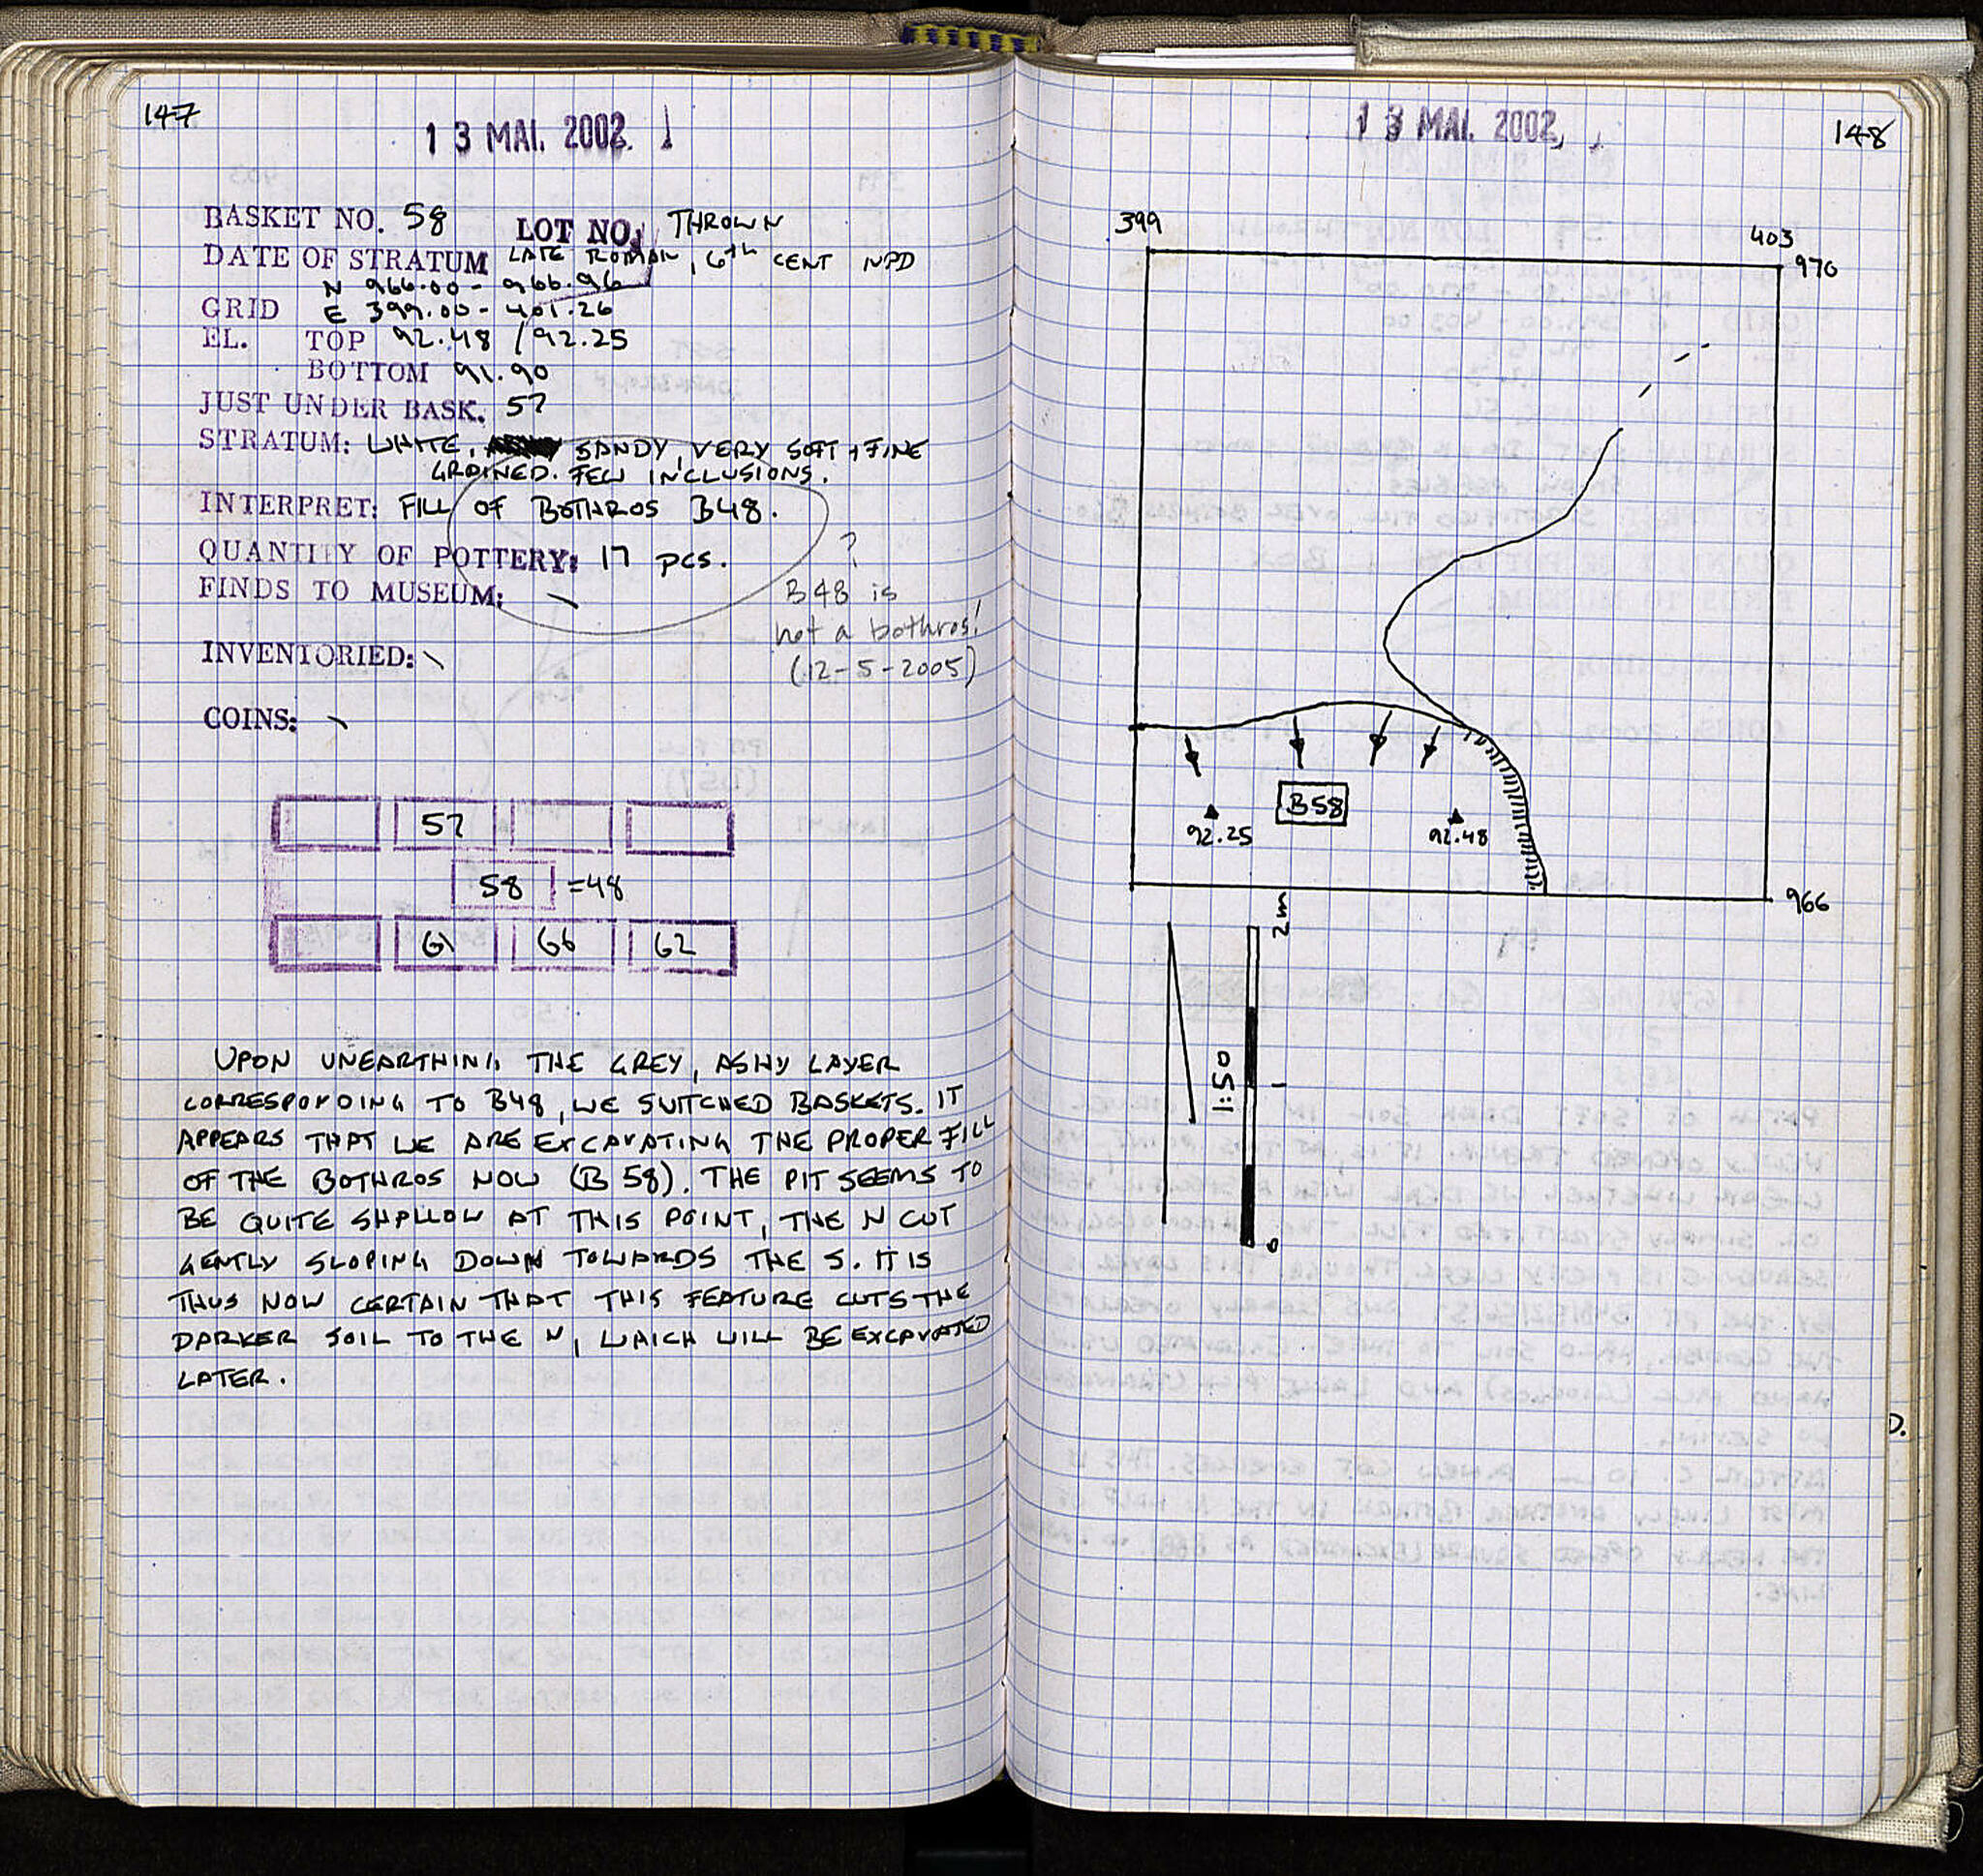 147
13 MAI. 2002.
BASKET NO. 58 LOT NO. THROWN
DATE OF STRATUM LATE ROMAN, 6th CENT NPD
N 966.00 - 966.96
GRID E 399.00 - 401.26
EL. TOP 92.48 / 92.25
BOTTOM 91.90
JUST UNDER BASK. 57
STRATUM: WHITE, SANDY, VERY SOFT + FINE
GRAINED. FEW INCLUSIONS.
INTERPRET: FILL OF BOTHROS B48.
QUANTITY OF POTTERY: 17 PCS.
?
FINDS TO MUSEUM: \
B48 is
not a bothros!
(12-5-2005)
INVENTORIED: \
COINS: \
57
58 =48
61 66 62
UPON UNEARTHING THE GREY, ASHY LAYER
CORRESPONDING TO B48, WE SWITCHED BASKETS. IT
APPEARS THAT WE ARE EXCAVATING THE PROPER FILL
OF THE BOTHROS NOW (B 58). THE PIT SEEMS TO
BE QUITE SHALLOW AT THIS POINT, THE N CUT
GENTLY SLOPING DOWN TOWARDS THE S. IT IS
THUS NOW CERTAIN THAT THIS FEATURE CUTS THE
DARKER SOIL TO THE N, WHICH WILL BE EXCAVATED
LATER.
13 MAI. 2002.
148
399
403
970
B58
92.25
92.48
966
2m
1
1:50
0
D.